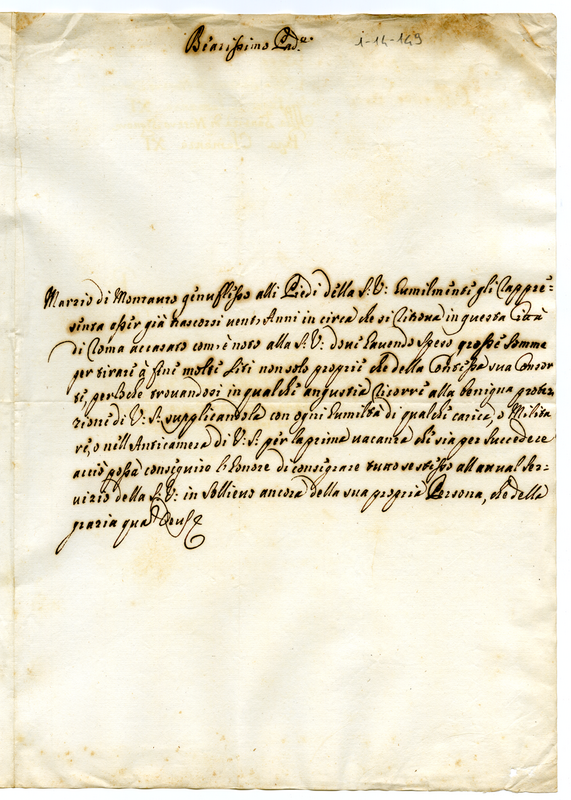 Beatissimo Pad.re
1-14-149
Marzio di Montauto genuflesso alli Piedi della S.V: humilmente gli rappre=
senta esser già trascorsi vent'Anni in circa che si ritrova in questa Città
di Roma accasato com'è noto alla S.V: dove havendo speso grosse somme
per tirare à fine molte liti non solo proprie che della Contessa sua Consor
te, perloche trovandosi in qualche angustia ricorre alla benigna protet
zione di V.S: supplicandola con ogni humiltà di qualche carica, o Milita
re, o nell'Anticamera di V.S: per la prima vacanza che sia per succedere
acciò possa conseguire l'honore di consegrare tutto se stesso all'attual ser=
vizio della S.V: in sollievo ancora della sua propria Persona, che della
grazia quas Deus &